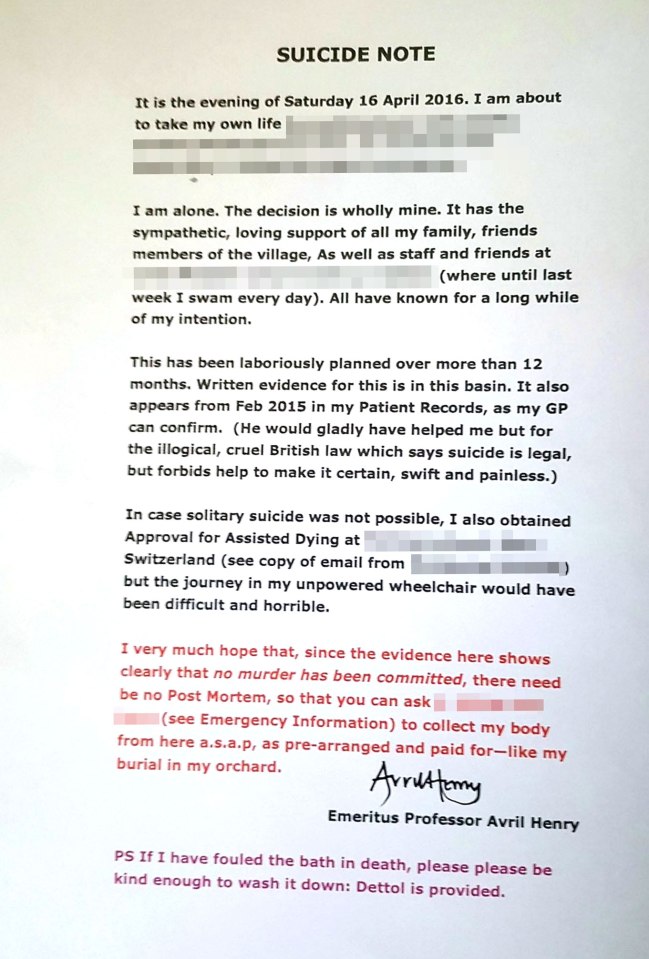 SUICIDE NOTE
It is the evening of Saturday 16 April 2016. I am about
to take my own life
I am alone. The decision is wholly mine. It has the
sympathetic, loving support of all my family, friends
members of the village, As well as staff and friends at
(where until last
week I swam every day). All have known for a long while
of my intention.
This has been laboriously planned over more than 12
months. Written evidence for this is in this basin. It also
appears from Feb 2015 in my Patient Records, as my GP
can confirm.  (He would gladly have helped me but for
the illogical, cruel British law which says suicide is legal,
but forbids help to make it certain, swift and painless.)
In case solitary suicide was not possible, I also obtained
Approval for Assisted Dying at
Switzerland (see copy of email from )
but the journey in my unpowered wheelchair would have
been difficult and horrible.
I very much hope that, since the evidence here shows
clearly that no murder has been committed, there need
be no Post Mortem, so that you can ask
(see Emergency Information) to collect my body
from here a.s.a.p, as pre-arranged and paid for—like my
burial in my orchard.
Avril Henry
Emeritus Professor Avril Henry
PS If I have fouled the bath in death, please please be
kind enough to wash it down: Dettol is provided.